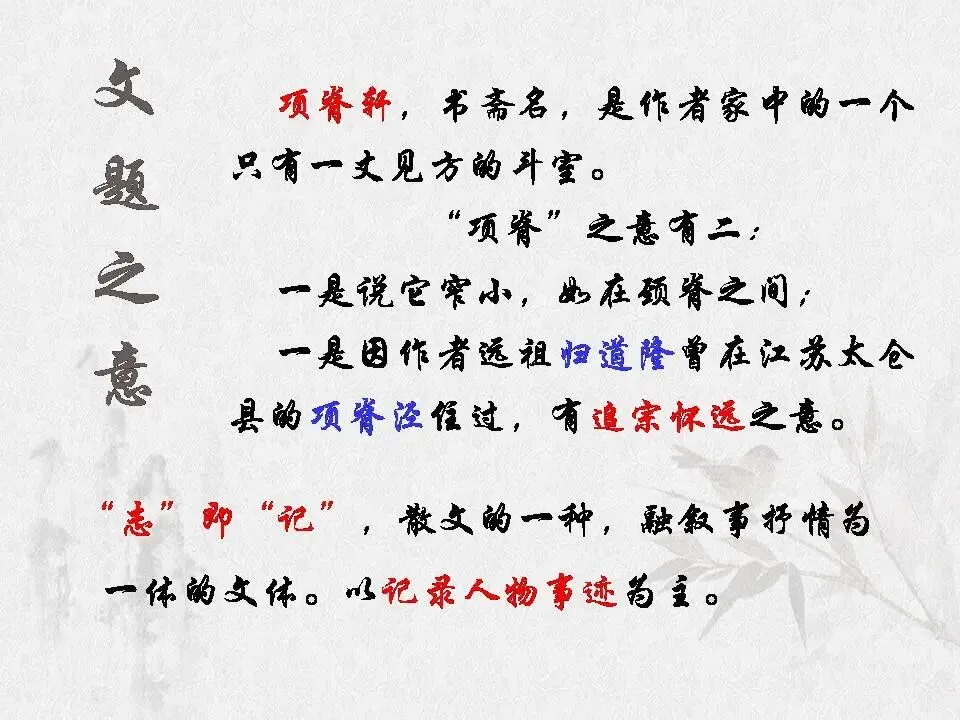 文题之意
项脊轩，书斋名，是作者家中的一个
只有一丈见方的斗室。
“项脊”之意有二：
一是说它窄小，如在颈脊之间；
一是因作者远祖归道隆曾在江苏太仓
县的项脊泾住过，有追宗怀远之意。
“志”即“记”，散文的一种，融叙事抒情为
一体的文体。以记录人物事迹为主。